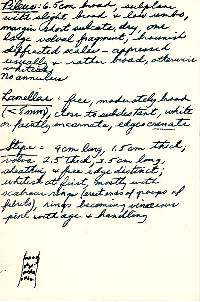 Pileus: 6.5cm broad, subplane
with slight broad & low umbo,
margin short sulcate, dry, one
large volval fragment, brownish
diffracted scales - appressed
usually & rather broad, otherwise
whitish
No annulus
Lamellae: free, moderately broad
(< 8mm), close to subdistant, white
or faintly incarnate, edge crenate
Stipe = 9cm long, 1.5cm thick;
volva 2.5 thick, 3.5cm long,
sheathing & free edge distinct;
whitish at first, mostly with
scabrous rings (erect ends of groups of
fibrils), rings becoming vinaceous
pink with age & handling